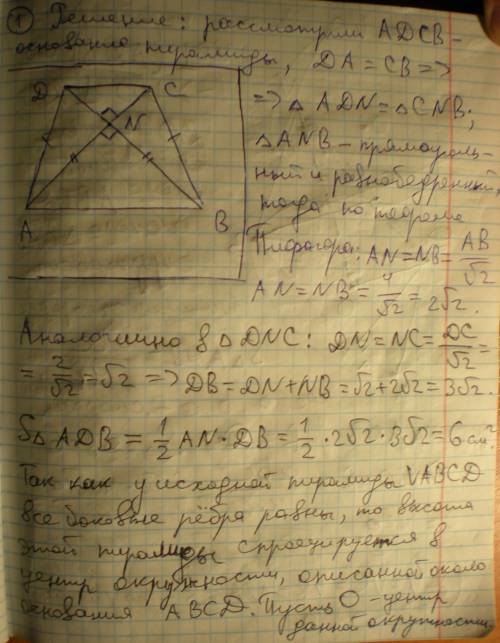 ① Решение: рассмотрим ADCB -
основание пирамиды, DA = CB =>
=> △ ADN = △ CNB;
△ ANB - прямоуголь-
ный и равнобедренный,
тогда по теореме
Пифагора: AN = NB = AB/√2
AN = NB = 4/√2 = 2√2.
D C
N
A B
Аналогично в △ DNC: DN = NC = DC/√2 =
= 2/√2 = √2 => DB = DN + NB = √2 + 2√2 = 3√2.
S△ ADB = 1/2 AN · DB = 1/2 · 2√2 · 3√2 = 6 см².
Так как у исходной пирамиды VABCD
все боковые рёбра равны, то высота
этой пирамиды спроецируется в
центр окружности, описанной около
основания ABCD. Пусть O - центр
данной окружности,